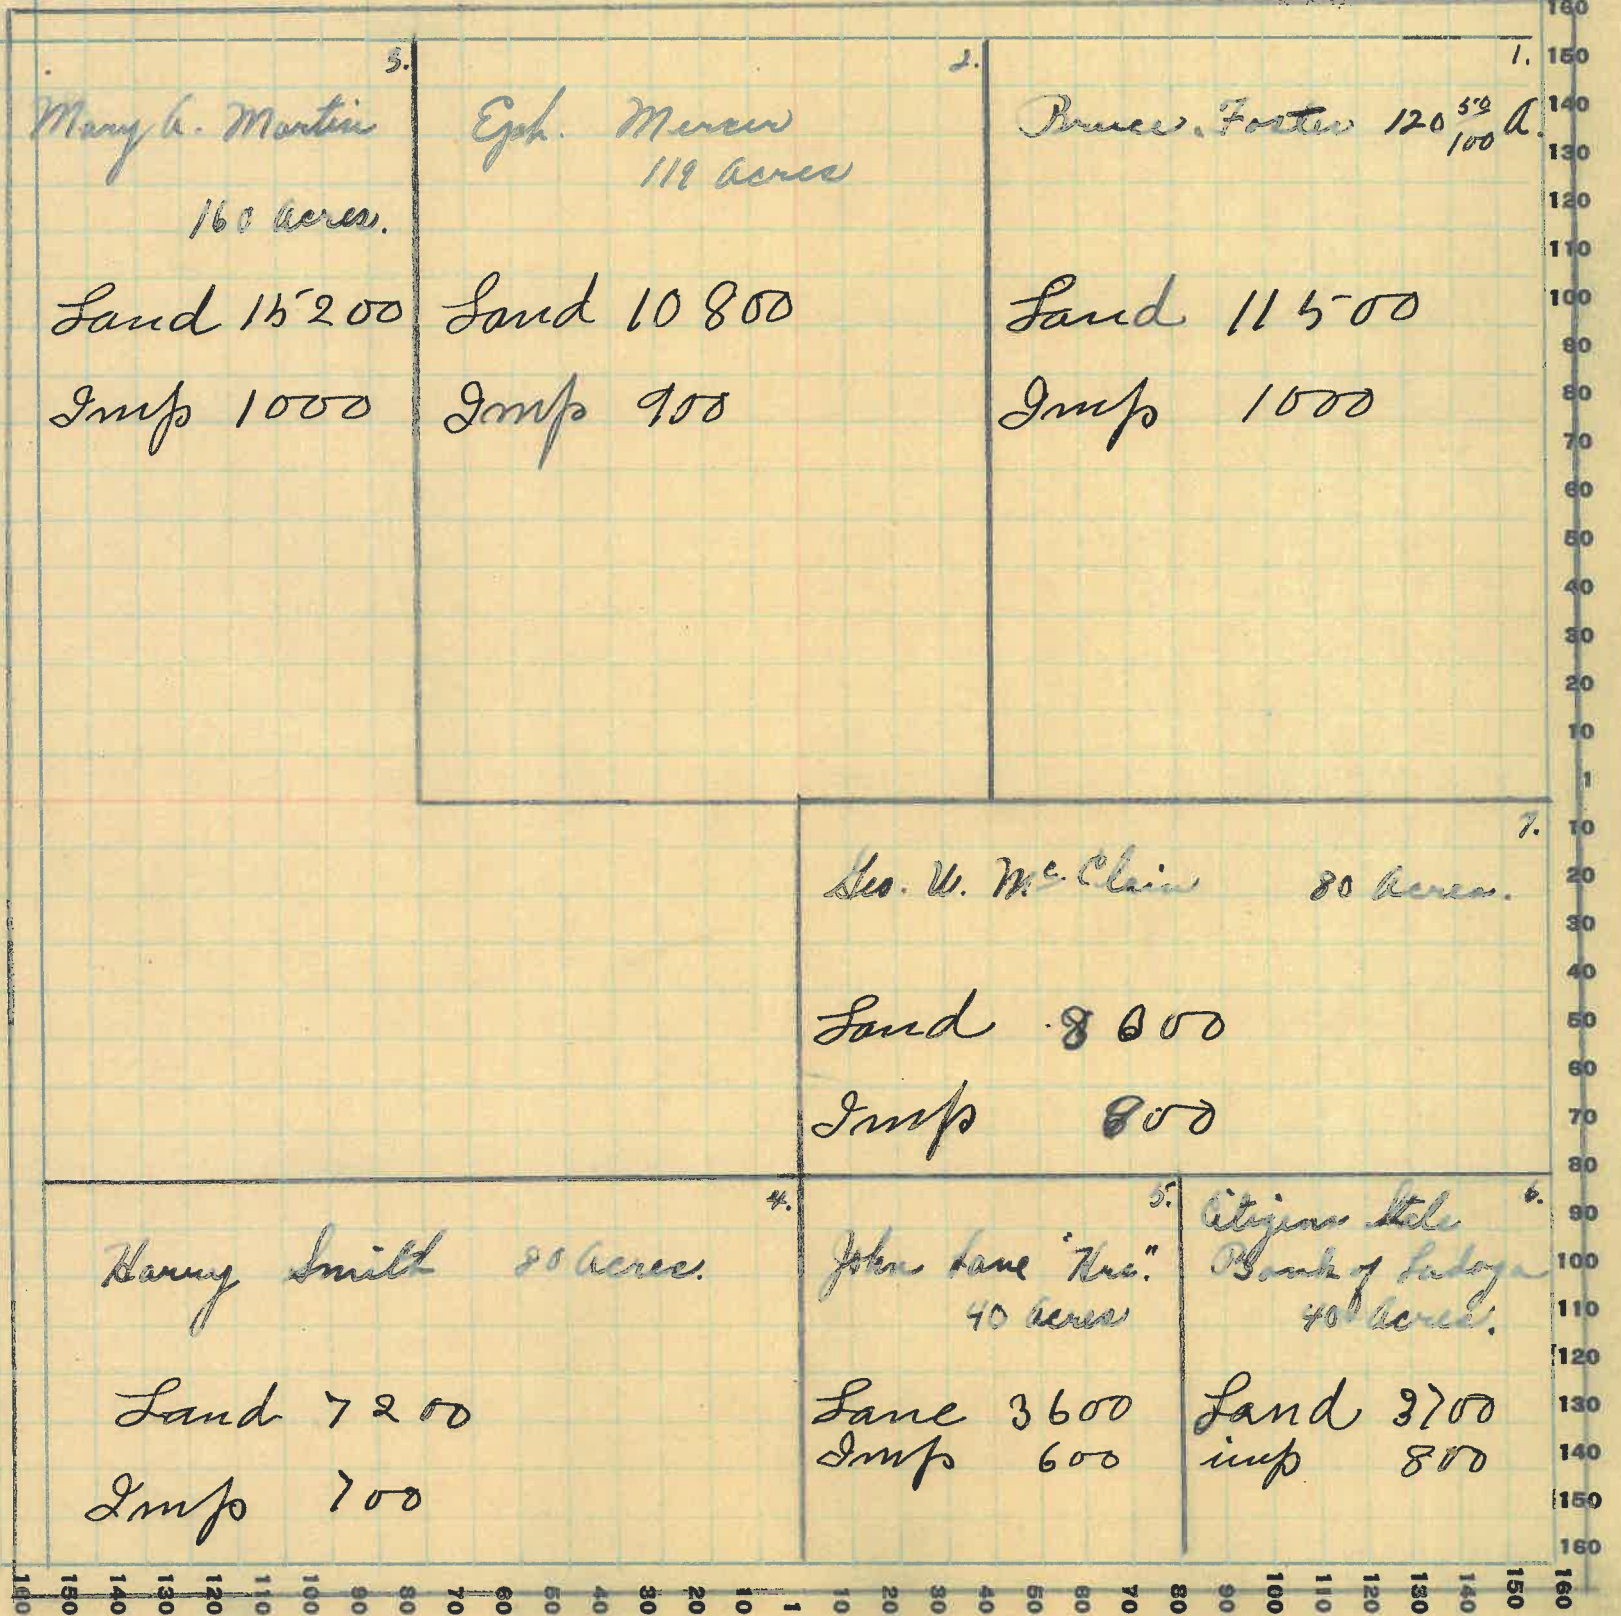 3.
Mary A. Martin
160 Acres.
Land 15200
Imp 1000
2.
Eph. Mercer
119 Acres
Land 10800
Imp 900
1.
Bruce. Foster 120 50/100 A.
Land 11500
Imp 1000
7.
Geo. W. McClain 80 Acres.
Land 8600
Imp 800
4.
Harry Smith 80 Acres.
Land 7200
Imp 700
5.
John Lane "Hrs."
40 Acres
Lane 3600
Imp 600
6.
Citizens State
Bank of Ladoga
40 Acres.
Land 3700
imp 800
160
150
140
130
120
110
100
90
80
70
60
50
40
30
20
10
1
10
20
30
40
50
60
70
80
90
100
110
120
130
140
150
160
160 150 140 130 120 110 100 90 80 70 60 50 40 30 20 10 1 10 20 30 40 50 60 70 80 90 100 110 120 130 140 150 160